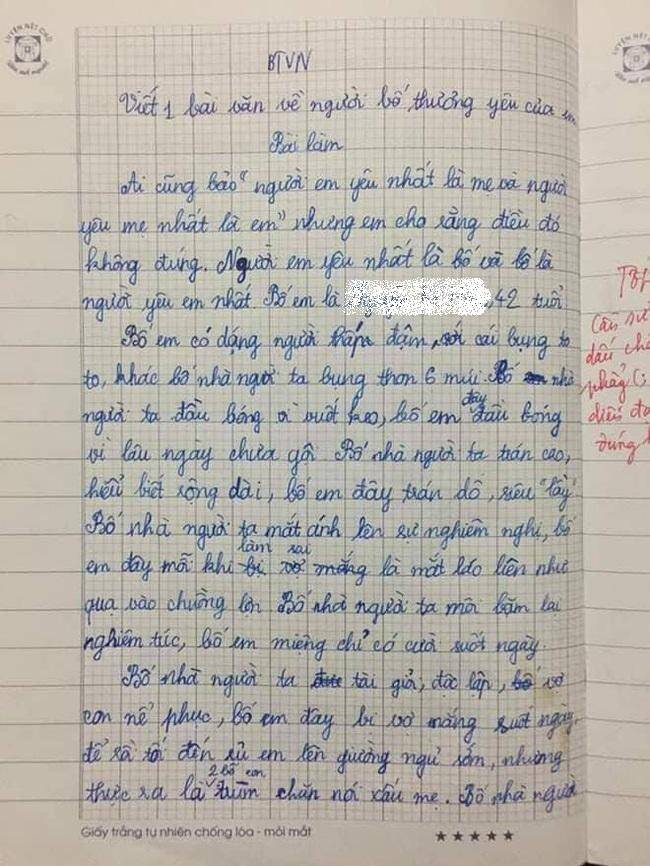 LUYỆN NÉT CHỮ
BTVN
Viết 1 bài văn về người bố, thương yêu của em
Bài làm
Ai cũng bảo "người em yêu nhất là mẹ và người
yêu mẹ nhất là em" nhưng em cho rằng điều đó
không đúng. Người em yêu nhất là bố và bố là
người yêu em nhất. Bố em là , 42 tuổi
Bố em có dáng người thấp đậm, với cái bụng to
to, khác bố nhà người ta bụng thon 6 múi. Bố nhà
người ta đầu bóng vì vuốt keo, bố em đây đầu bóng
vì lâu ngày chưa gội. Bố nhà người ta trán cao,
hiểu biết rộng dài, bố em đây trán dô, siêu "lầy".
Bố nhà người ta mắt ánh lên sự nghiêm nghị, bố
em đây mỗi khi làm sai bị vợ mắng là mắt láo liên như
qua vào chuồng lợn. Bố nhà người ta môi bặm lại
nghiêm túc, bố em miệng chỉ có cười suốt ngày.
Bố nhà người ta tài giỏi, độc lập, vợ
con nể phục, bố em đây bị vợ mắng suốt ngày,
để rồi tối đến rủ em lên giường ngủ sớm, nhưng
thực ra là 2 bố con trùm chăn nói xấu mẹ. Bố nhà người
Giấy trắng tự nhiên chống lóa - mỏi mắt
★★★★★
dấu
phẩy (,